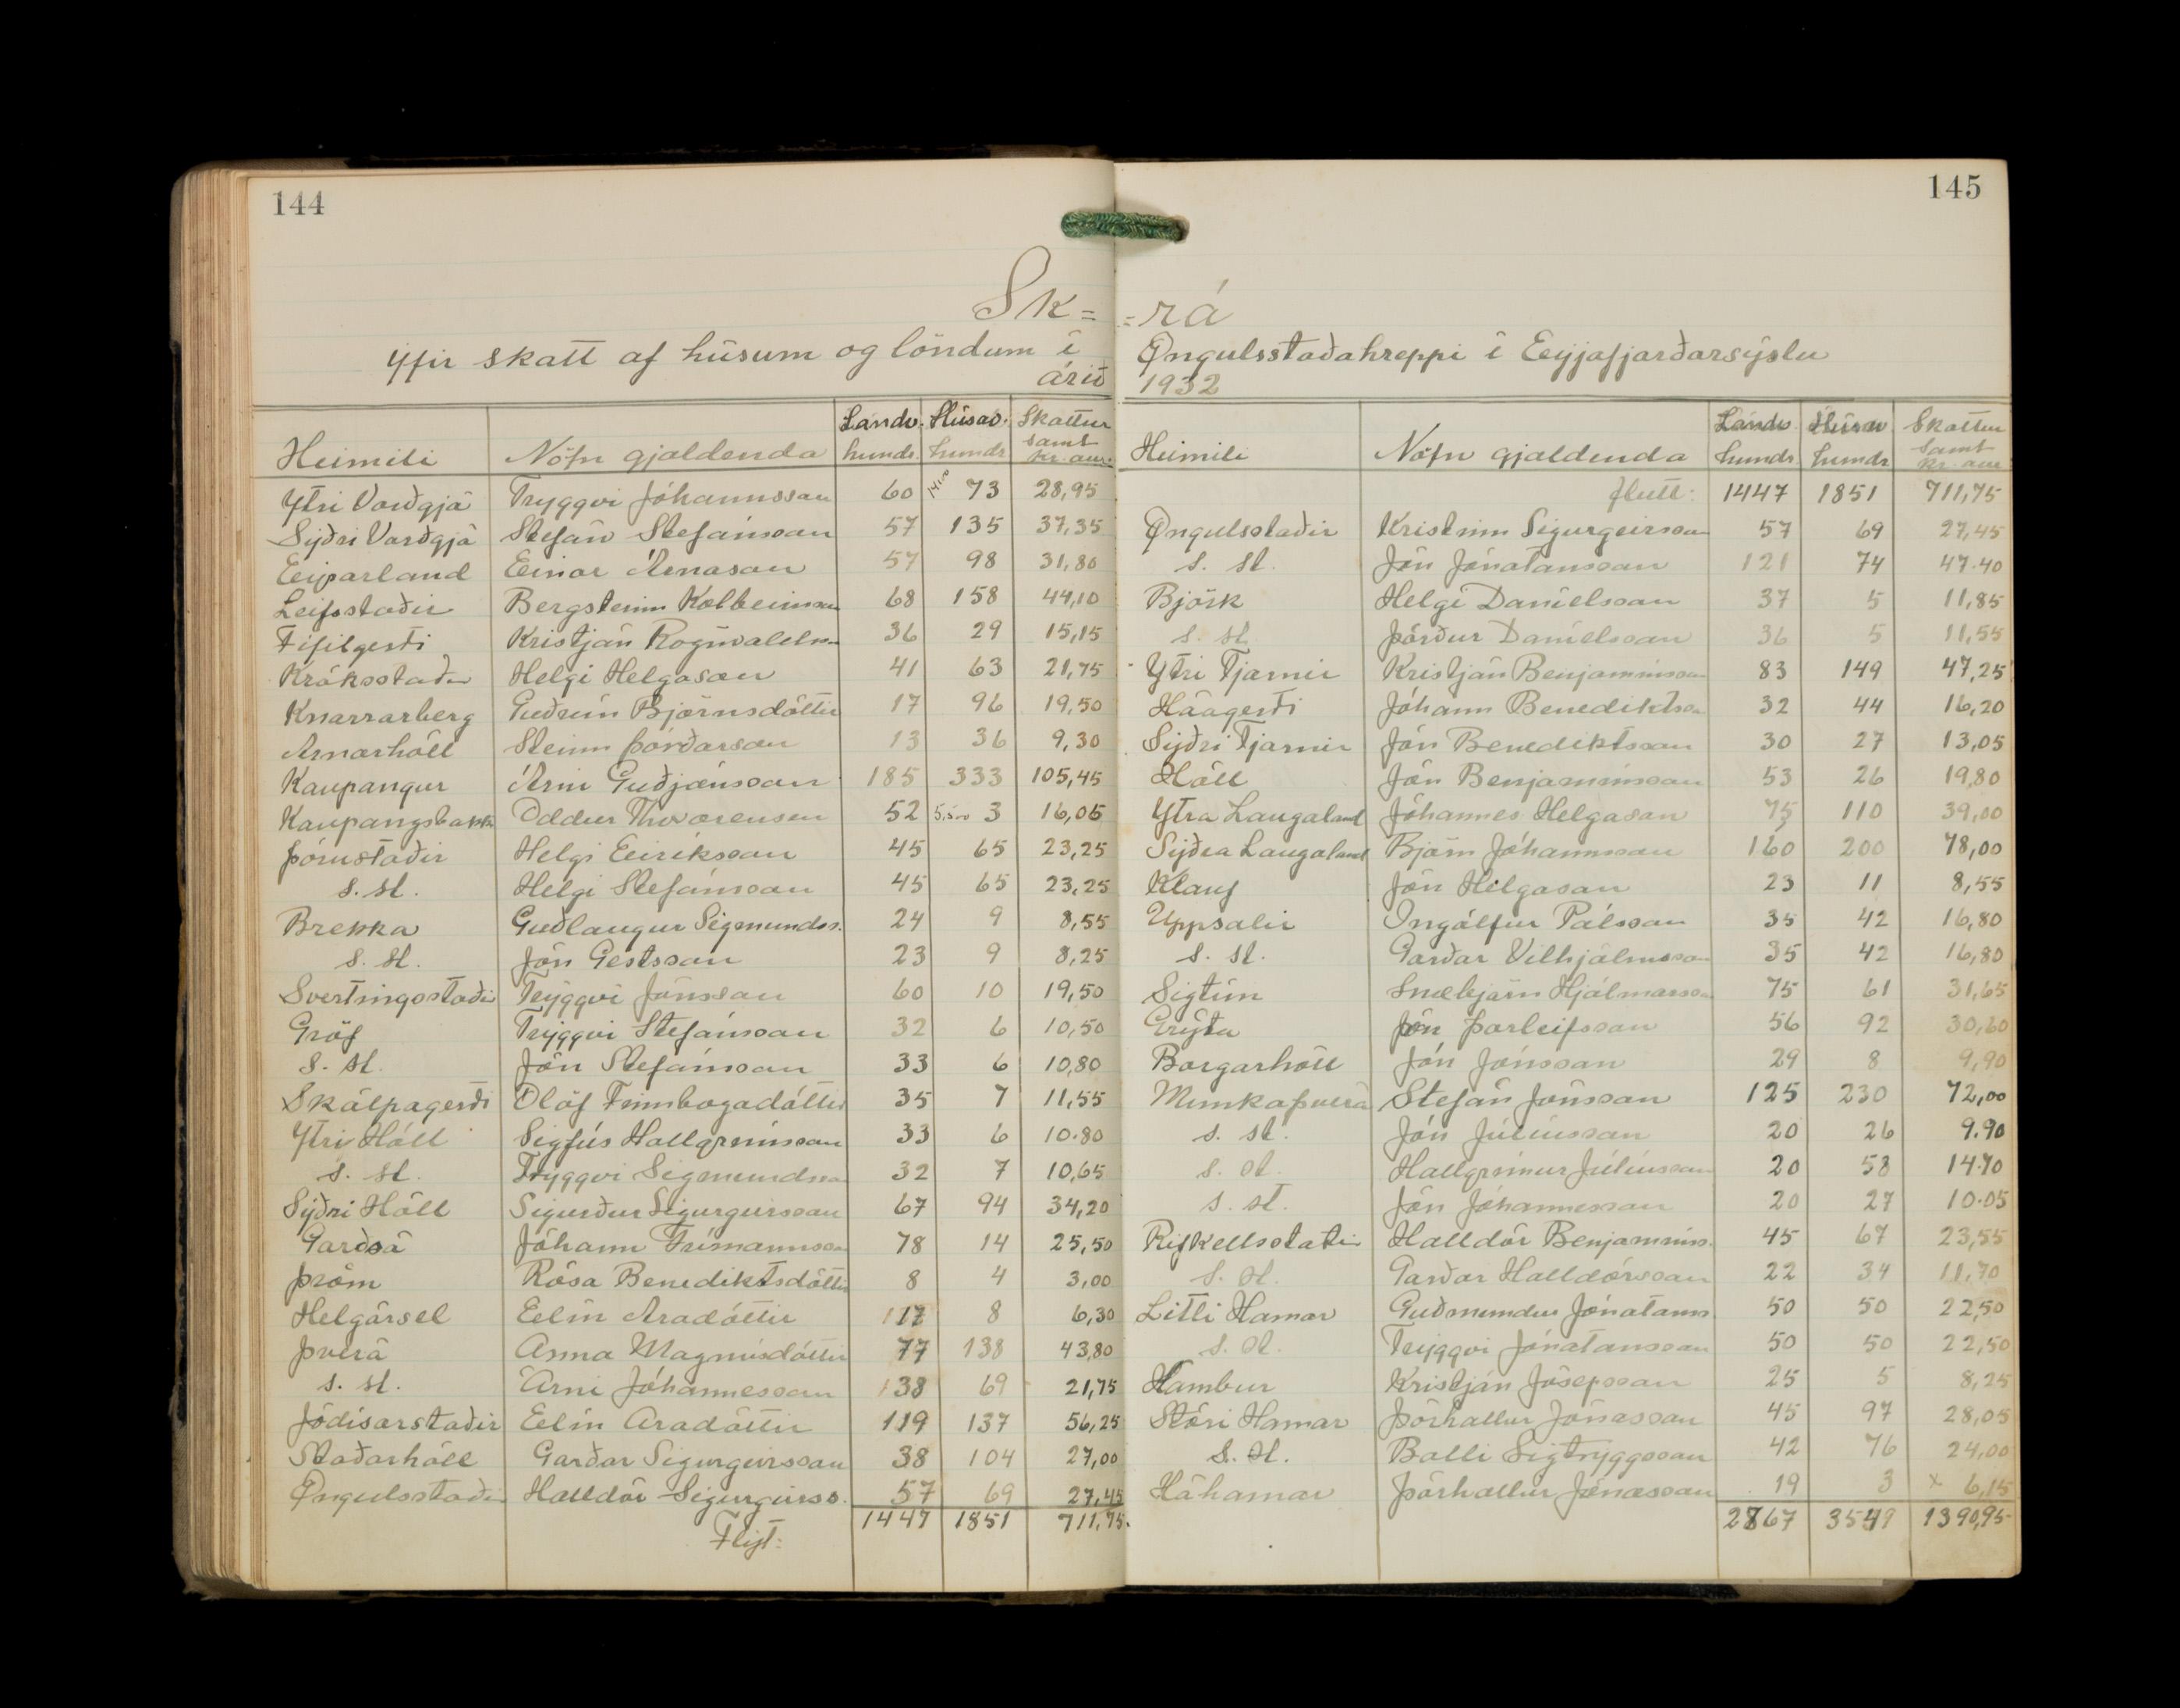 144
Sk=
Yfir skatt af húsum og löndum í
árið
Heimili Nöfn gjaldenda Landv. hundr. Húsav. hundr. Skattur samt kr. aur.
Ytri Varðgjá Tryggvi Jóhannsson 60 73 28,95
Syðri Varðgjá Stefán Stefánsson 57 135 37,35
Eyrarland Einar Árnason 57 98 31,80
Leifsstaðir Bergsteinn Kolbeinsson 68 158 44,10
Fífilgerði Kristján Rögnvaldsson 36 29 15,15
Króksstaðir Helgi Helgason 41 63 21,75
Knarrarberg Guðrún Björnsdóttir 17 96 19,50
Arnarhóll Steinn Þórðarson 13 36 9,30
Kaupangur Árni Guðjónsson 185 333 105,45
Kaupangsbakki Oddur Thorarensen 52 3 16,05
Þórustaðir Helgi Eiríksson 45 65 23,25
s. st. Helgi Stefánsson 45 65 23,25
Brekka Guðlaugur Sigmundss. 24 9 8,55
s. st. Jón Gestsson 23 9 8,25
Svertingsstaðir Tryggvi Jónsson 60 10 19,50
Gröf Tryggvi Stefánsson 32 6 10,50
s. st. Jón Stefánsson 33 6 10,80
Skálpagerði Ólöf Finnbogadóttir 35 7 11,55
Ytri Hóll Sigfús Hallgrímsson 33 6 10.80
s. st. Tryggvi Sigmundsson 32 7 10,65
Syðri Hóll Sigurður Sigurgeirsson 67 94 34,20
Garðsá Jóhann Frímannsson 78 14 25,50
Þröm Rósa Benediktsdóttir 8 4 3,00
Helgársel Elín Aradóttir 17 8 6,30
Þverá Anna Magnúsdóttir 77 138 43,80
s. st. Árni Jóhannesson 38 69 21,75
Jódísarstaðir Elín Aradóttir 119 137 56,25
Staðarhóll Garðar Sigurgeirsson 38 104 27,00
Öngulsstaðir Halldór Sigurgeirss. 57 69 27,45
Flyt: 1447 1851 711,75.
145
=rá
Öngulsstaðahreppi í Eyjafjarðarsýslu
1932
Heimili Nöfn gjaldenda Landv. hundr. Húsav hundr Skattur samt kr. aur
flutt: 1447 1851 711,75
Öngulsstaðir Kristinn Sigurgeirsson 57 69 27,45
s. st. Jón Jónatansson 121 74 47.40
Björk Helgi Daníelsson 37 5 11,85
s. st Þórður Daníelsson 36 5 11,55
Ytri Tjarnir Kristján Benjamínsson 83 149 47,25
Háagerði Jóhann Benediktsson 32 44 16,20
Syðri Tjarnir Jón Benediktsson 30 27 13,05
Hóll Jón Benjamínsson 53 26 19,80
Ytra Laugaland Jóhannes Helgason 75 110 39,00
Syðra Laugaland Björn Jóhannsson 160 200 78,00
Klauf Jón Helgason 23 11 8,55
Uppsalir Ingólfur Pálsson 35 42 16,80
s. st. Garðar Vilhjálmsson 35 42 16,80
Sigtún Snæbjörn Hjálmarsson 75 61 31,65
Grýta Jón Þorleifsson 56 92 30,60
Borgarhóll Jón Jónsson 29 8 9,90
Munkaþverá Stefán Jónsson 125 230 72,00
s. st. Jón Júlíusson 20 26 9.90
s. st. Hallgrímur Júlíusson 20 58 14.70
s. st. Jón Jóhannesson 20 27 10.05
Rifkellsstaðir Halldór Benjamínss. 45 67 23,55
s. st. Garðar Halldórsson 22 34 11,70
Litli Hamar Guðmundur Jónatanss. 50 50 22,50
s. st. Tryggvi Jónatansson 50 50 22,50
Hambur Kristján Jósepsson 25 5 8,25
Stóri Hamar Þórhallur Jónasson 45 97 28,05
s. st. Balli Sigtryggsson 42 76 24,00
Háhamar Þórhallur Jónasson 19 3 x 6,15
2867 3549 1390,95